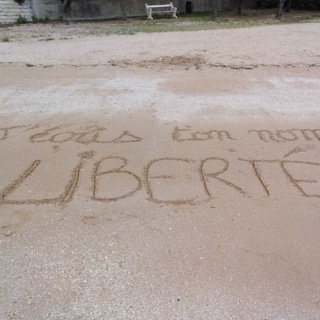 J'écris ton nom
LIBERTÉ